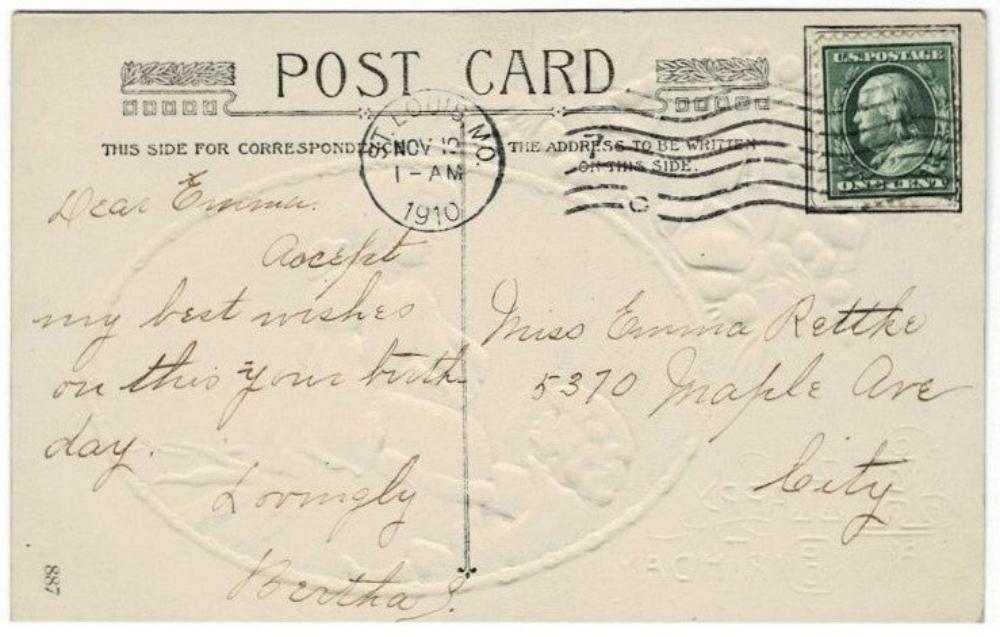 POST CARD.
THIS SIDE FOR CORRESPONDENCE
THE ADDRESS TO BE WRITTEN
ON THIS SIDE.
ST. LOUIS MO.
NOV 12
1-AM
1910
7
C
U.S. POSTAGE
ONE CENT
Dear Emma.
Accept
my best wishes
on this your birth
day.
Lovingly
Bertha S.
Miss Emma Rettke
5370 Maple Ave
City
887